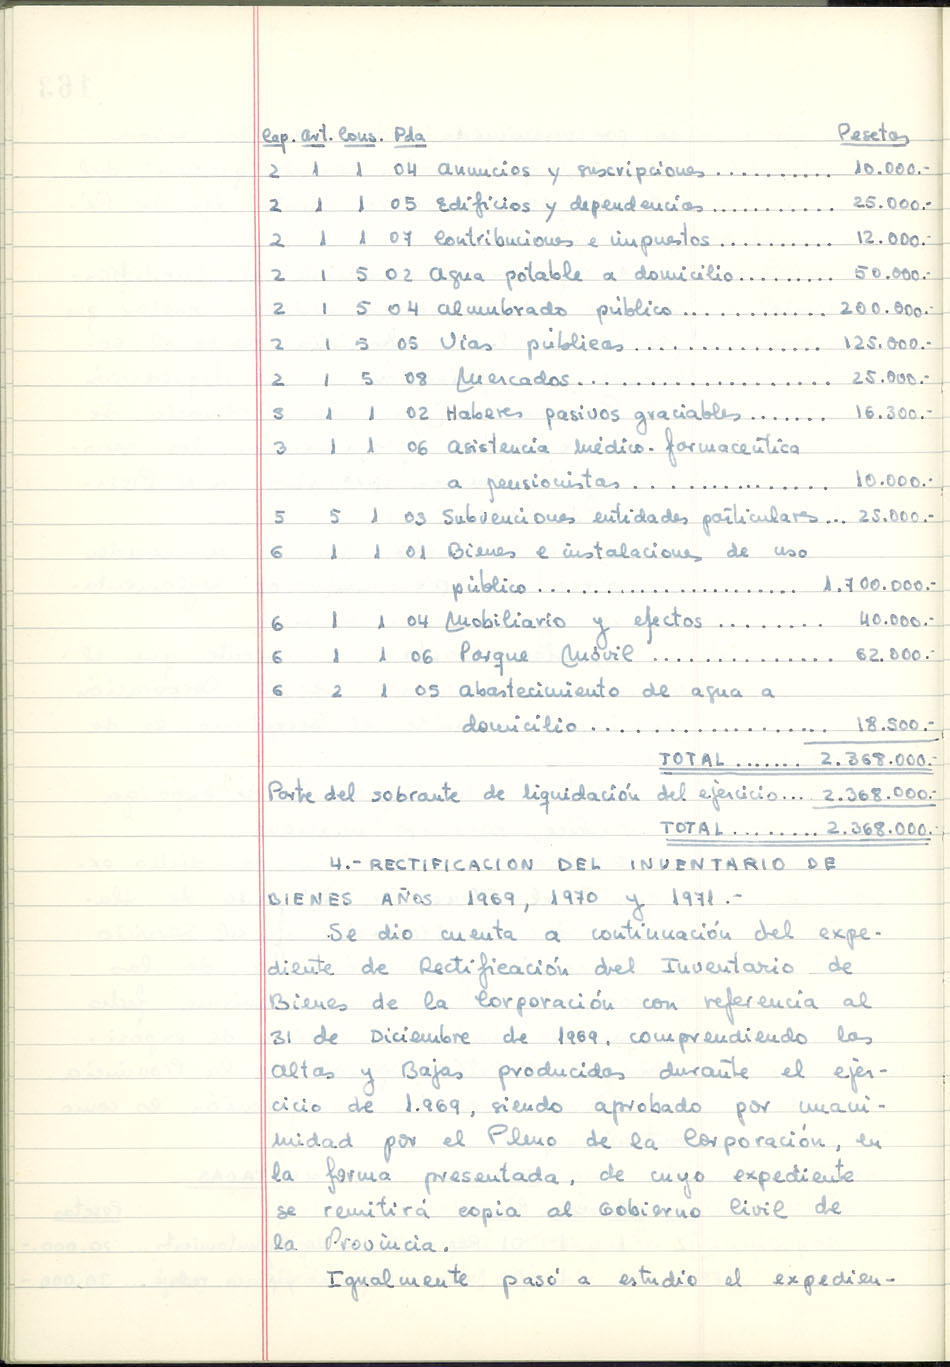 Cap. Art. Cons. Pda Pesetas
2 1 1 04 Anuncios y suscripciones........... 10.000.-
2 1 1 05 Edificios y dependencias........... 25.000.-
2 1 1 07 Contribuciones e impuestos.......... 12.000.-
2 1 5 02 Agua potable a domicilio......... 50.000.-
2 1 5 04 Alumbrado público............. 200.000.-
2 1 5 05 Vías públicas................. 125.000.-
2 1 5 08 Mercados...................... 25.000.-
3 1 1 02 Haberes pasivos graciables....... 16.300.-
3 1 1 06 Asistencia médico-farmaceútica
a pensionistas............... 10.000.-
5 5 1 03 Subvenciones entidades particulares... 25.000.-
6 1 1 01 Bienes e instalaciones de uso
público...................... 1.700.000.-
6 1 1 04 Mobiliario y efectos ......... 40.000.-
6 1 1 06 Parque Móvil .............. 62.000.-
6 2 1 05 Abastecimiento de agua a
domicilio................... 18.500.-
TOTAL ....... 2.368.000.-
Parte del sobrante de liquidación del ejercicio... 2.368.000.-
TOTAL ......... 2.368.000.-
4.- RECTIFICACION DEL INVENTARIO DE
BIENES AÑOS 1969, 1970 y 1971.-
Se dio cuenta a continuación del expe-
diente de Rectificación del Inventario de
Bienes de la Corporación con referencia al
31 de Diciembre de 1969, comprendiendo las
Altas y Bajas producidas durante el ejer-
cicio de 1.969, siendo aprobado por unani-
midad por el Pleno de la Corporación, en
la forma presentada, de cuyo expediente
se remitirá copia al Gobierno Civil de
la Provincia.
Igualmente pasó a estudio el expedien-